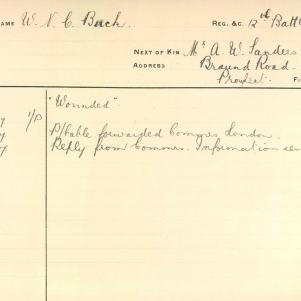 NAME W. N. C. Buch. REG. &C. 12th Batt
NEXT OF KIN Mr A. W. Sanders
ADDRESS Braund Road.
Prospect.
"Wounded".
y 1/P P/Cable forwarded Commrs London.
7 Reply from Commrs. Information sen